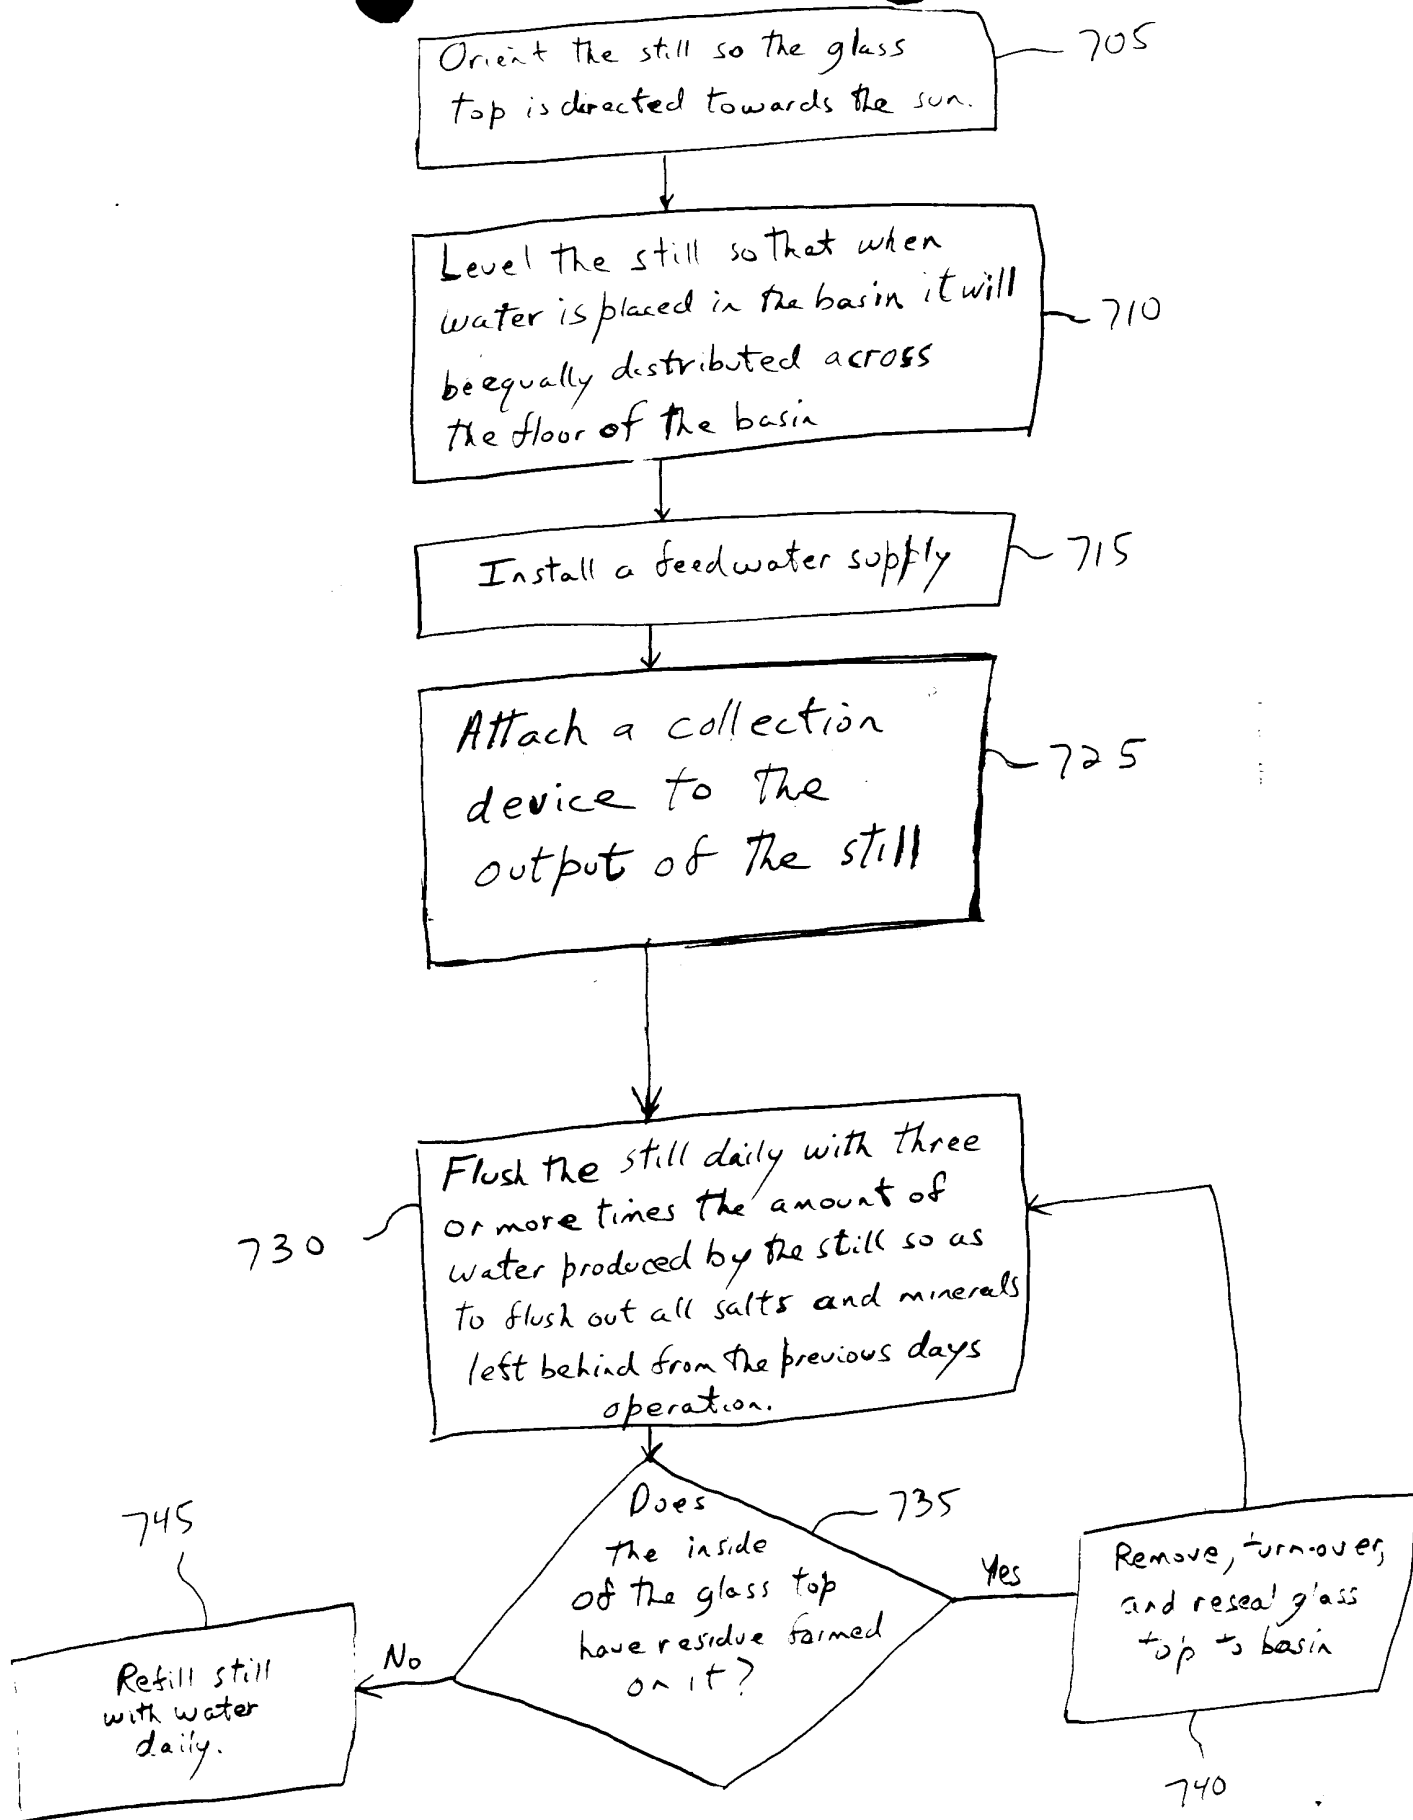 Orient the still so the glass
top is directed towards the sun.
705
Level the still so that when
water is placed in the basin it will
be equally distributed across
the floor of the basin
710
Install a feedwater supply
715
Attach a collection
device to the
output of the still
725
Flush the still daily with three
or more times the amount of
water produced by the still so as
to flush out all salts and minerals
left behind from the previous days
operation.
730
Does
the inside
of the glass top
have residue formed
on it?
735
Yes
Remove, turn-over,
and reseal glass
top to basin
740
No
Refill still
with water
daily.
745